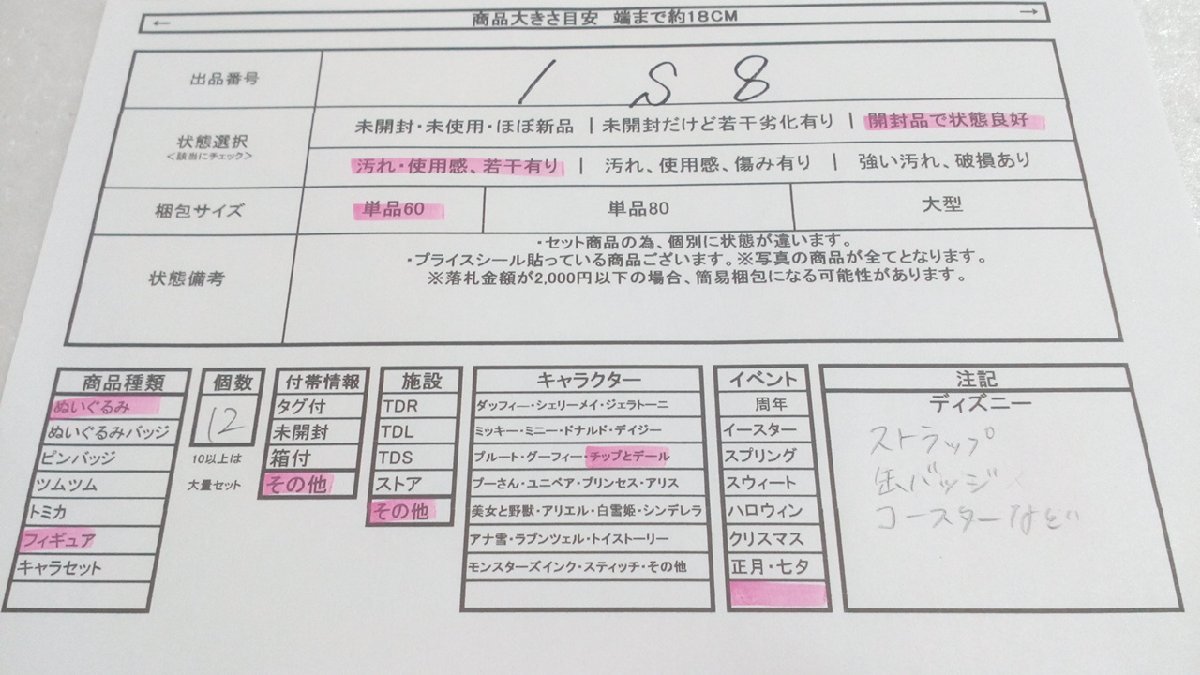 ← 商品大きさ目安 端まで約18CM →
出品番号 1 S 8
状態選択
<該当にチェック>
未開封・未使用・ほぼ新品 | 未開封だけど若干劣化有り | 開封品で状態良好
汚れ・使用感、若干有り | 汚れ、使用感、傷み有り | 強い汚れ、破損あり
梱包サイズ 単品60 単品80 大型
状態備考
・セット商品の為、個別に状態が違います。
・プライスシール貼っている商品ございます。※写真の商品が全てとなります。
※落札金額が2,000円以下の場合、簡易梱包になる可能性があります。
商品種類
ぬいぐるみ
ぬいぐるみバッジ
ピンバッジ
ツムツム
トミカ
フィギュア
キャラセット
個数
12
10以上は
大量セット
付帯情報
タグ付
未開封
箱付
その他
施設
TDR
TDL
TDS
ストア
その他
キャラクター
ダッフィー・シェリーメイ・ジェラトーニ
ミッキー・ミニー・ドナルド・デイジー
プルート・グーフィー・チップとデール
プーさん・ユニベア・プリンセス・アリス
美女と野獣・アリエル・白雪姫・シンデレラ
アナ雪・ラプンツェル・トイストーリー
モンスターズインク・スティッチ・その他
イベント
周年
イースター
スプリング
スウィート
ハロウィン
クリスマス
正月・七夕
注記
ディズニー
ストラップ
缶バッジ
コースターなど